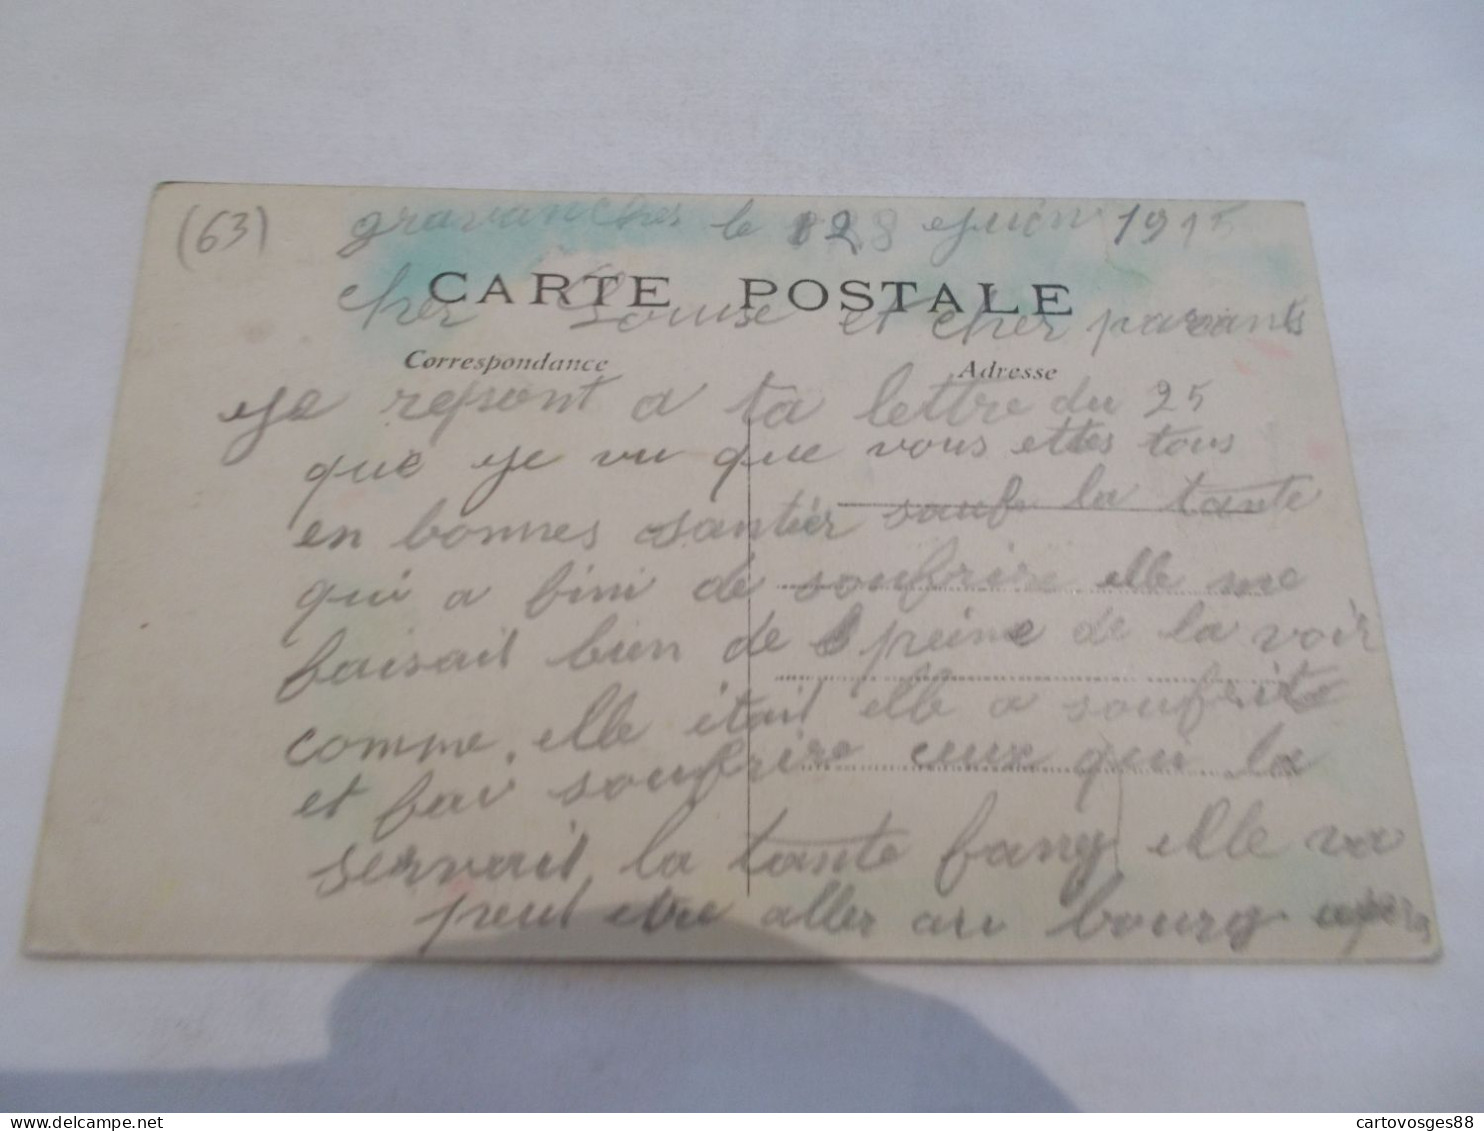 (63) gravanches le 28 juin 1915
CARTE POSTALE
cher Louise et cher parants
Correspondance
Adresse
je repont a ta lettre du 25
que je vu que vous ettes tous
en bonnes santiér sauf la tante
qui a fini de soufrire elle me
faisait bien de peine de la voir
comme elle était elle a soufrit
et fai soufrire ceux qui la
servait la tante fany elle va
peut etre aller au bourg
cartovosges88